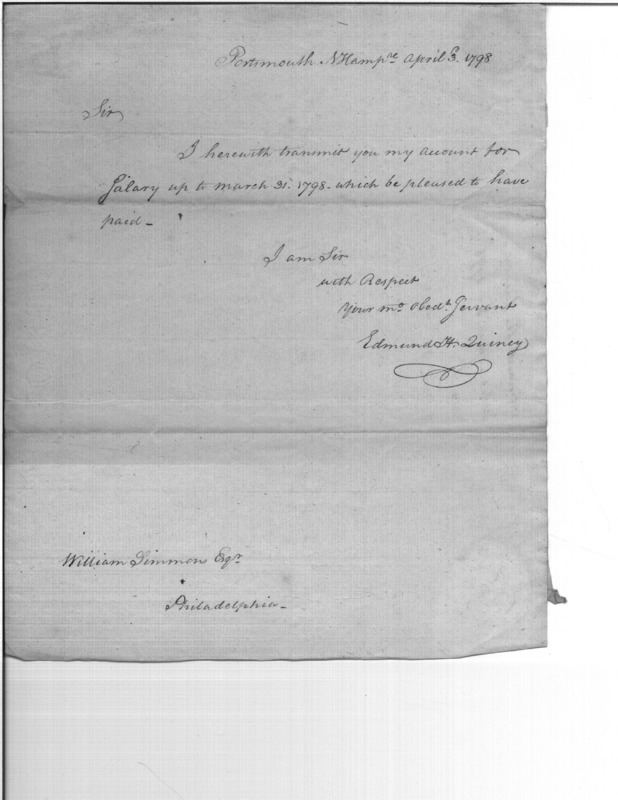 Portsmouth NHampre April 3. 1798
Sir
I herewith transmit you my account for
Salary up to march 31. 1798 - which be pleased to have
paid -
I am Sir
with Respect
Your mo. Obedt Servant
Edmund H. Quincy
William Simmons Esqr
Philadelphia -